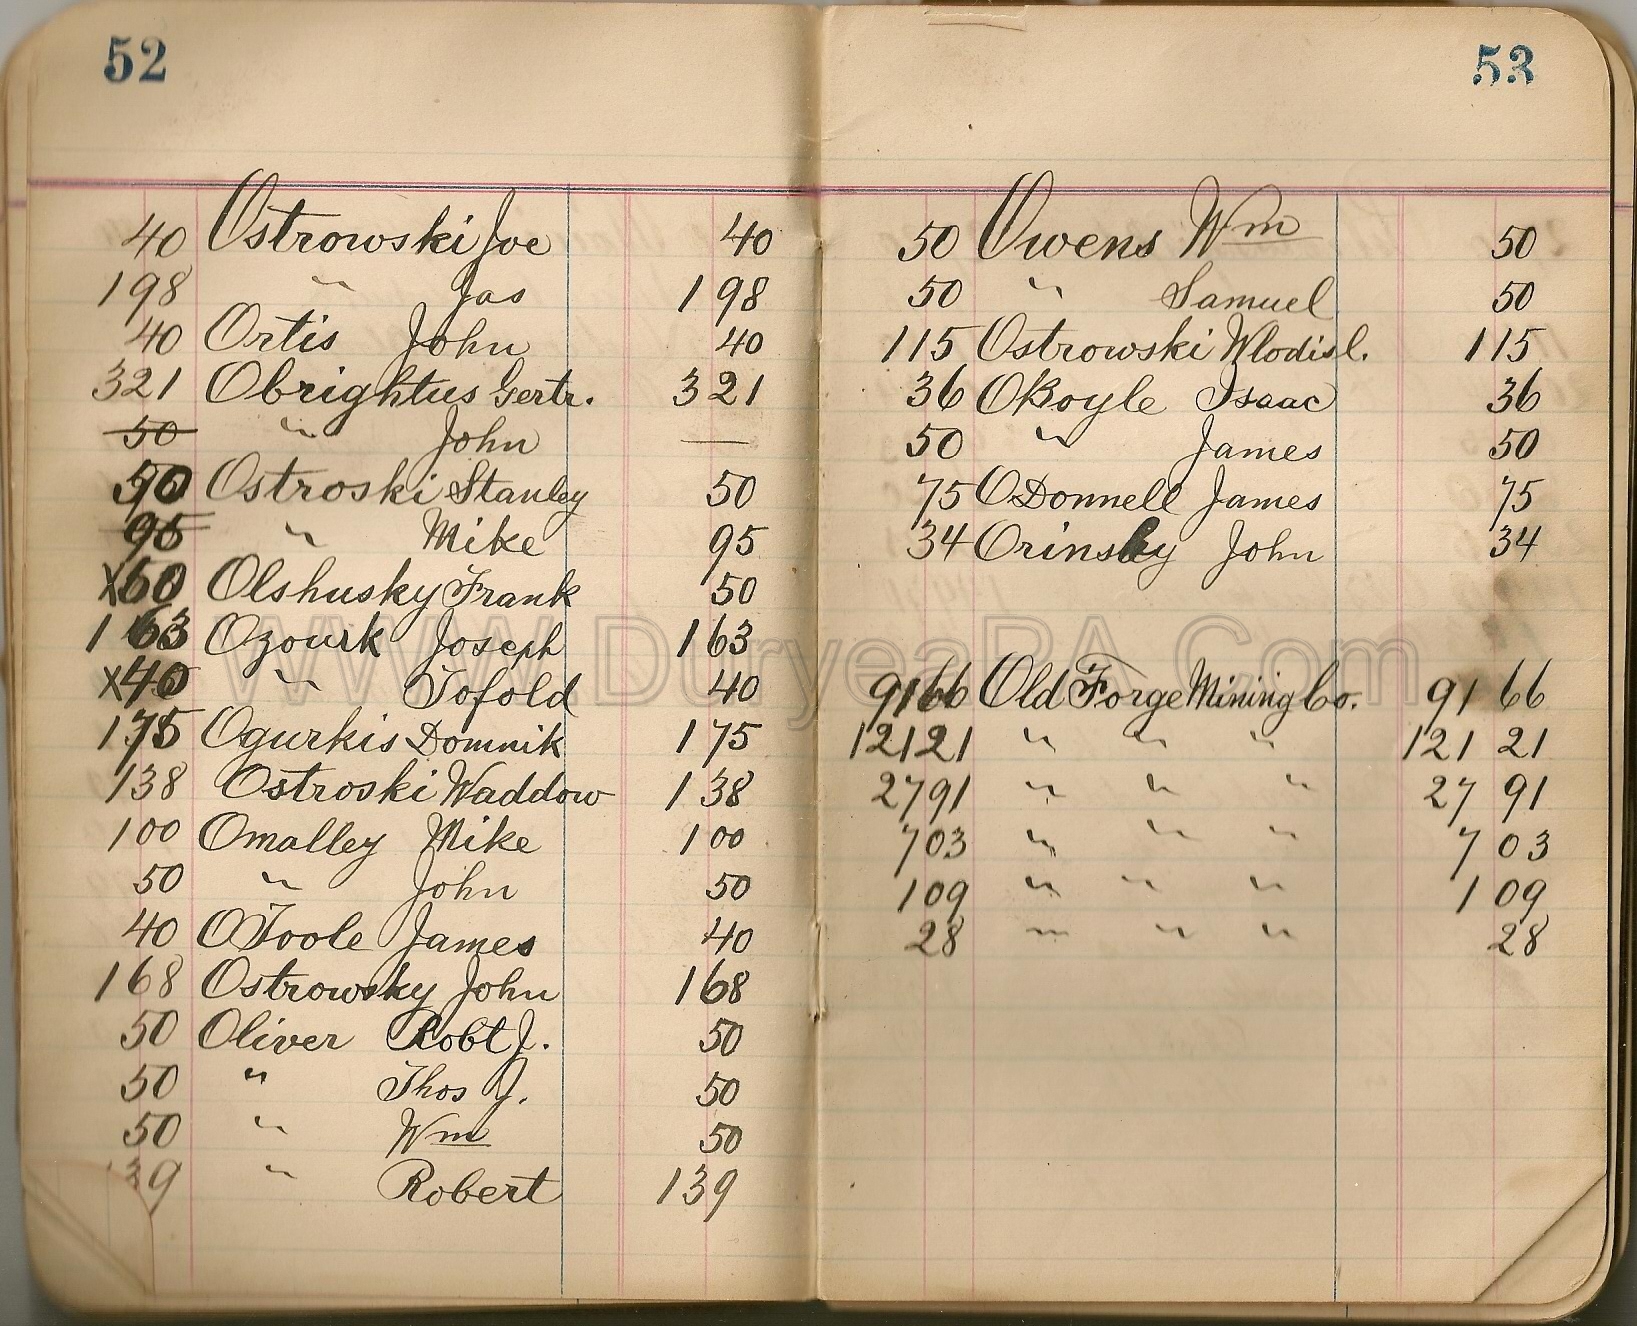 52
40 Ostrowski Joe 40
198 " Jas 198
40 Ortis John 40
321 Obrightus Gertr. 321
50 " John —
50 Ostroski Stanley 50
95 " Mike 95
x50 Olshusky Frank 50
163 Ozourk Joseph 163
x40 " Tofold 40
175 Ogurkis Domnik 175
138 Ostroski Waddow 138
100 Omalley Mike 100
50 " John 50
40 OToole James 40
168 Ostrowsky John 168
50 Oliver Robt J. 50
50 " Thos J. 50
50 " Wm 50
139 " Robert 139
53
50 Owens Wm 50
50 " Samuel 50
115 Ostrowski Wlodisl. 115
36 OBoyle Isaac 36
50 " James 50
75 ODonnell James 75
34 Orinsky John 34
9166 Old Forge Mining Co. 91 66
12121 " " " 121 21
2791 " " " 27 91
703 " " " 7 03
109 " " " 1 09
28 " " " 28
WWW.DuryeaPA.Com